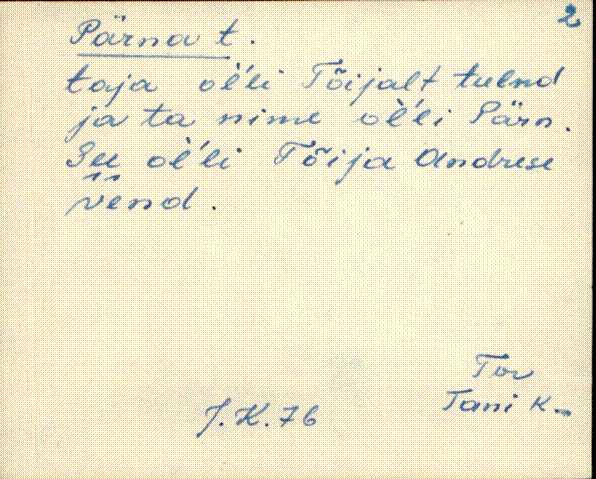 2
Pärna t.
taja oĺĺi Tõijalt tulnd
ja ta nime oĺĺi Pärn.
See oĺĺi Tõija Andrese
vend.
Tor
Tani k.
J.K.76